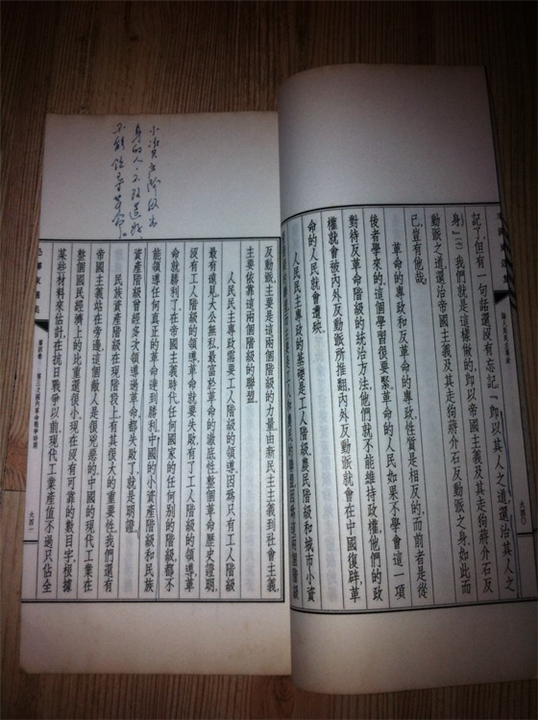 記了,但有一句話還沒有忘記:「即以其人之道,還治其人之
身」。我們就是這樣做的,即以帝國主義及其走狗蔣介石反
動派之道,還治帝國主義及其走狗蔣介石反動派之身。如此而
已,豈有他哉!
革命的專政和反革命的專政,性質是相反的,而前者是從
後者學來的。這個學習很要緊。革命的人民如果不學會這一項
對待反革命階級的統治方法,他們就不能維持政權,他們的政
權就會被內外反動派所推翻,內外反動派就會在中國復辟,革
命的人民就會遭殃。
人民民主專政的基礎是工人階級、農民階級和城市小資
小資產階級出
身的人不改造好
不能領導革命。
反動派,主要是這兩個階級的力量。由新民主主義到社會主義,
主要依靠這兩個階級的聯盟。
人民民主專政需要工人階級的領導。因為只有工人階級
最有遠見,大公無私,最富於革命的徹底性。整個革命歷史證明,
沒有工人階級的領導,革命就要失敗,有了工人階級的領導,革
命就勝利了。在帝國主義時代,任何國家的任何別的階級,都不
能領導任何真正的革命達到勝利。中國的小資產階級和民族
資產階級曾經多次領導過革命,都失敗了,就是明證。
民族資產階級在現階段上,有其很大的重要性。我們還有
帝國主義站在旁邊,這個敵人是很兇惡的。中國的現代工業在
整個國民經濟上的比重還很小。現在沒有可靠的數目字,根據
某些材料來估計,在抗日戰爭以前,現代工業產值不過只佔全
毛澤東選集
第四卷 第三次國內革命戰爭時期
九四一